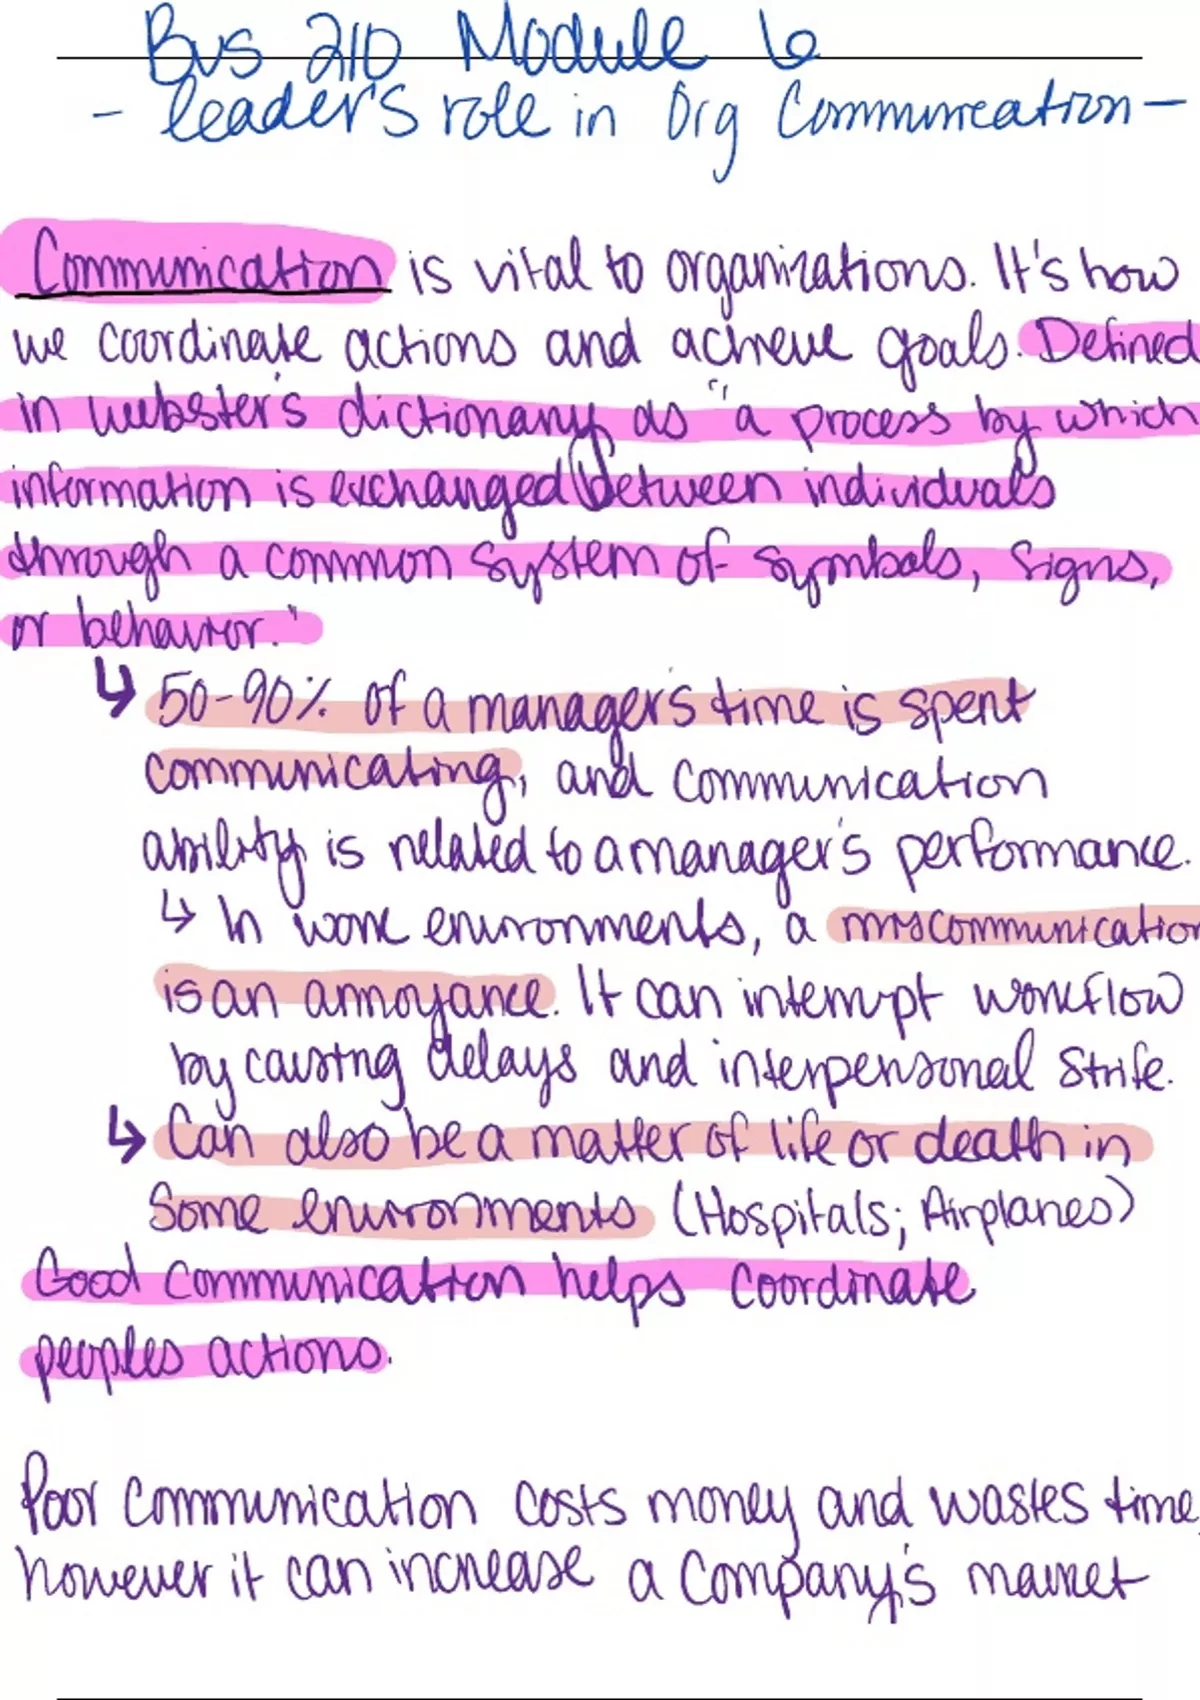 Bus 210 Module 6
- leader's role in Org Communication -
Communication is vital to organizations. It's how
we coordinate actions and achieve goals. Defined
in webster's dictionary as "a process by which
information is exchanged between individuals
through a common system of symbols, signs,
or behavior."
↳ 50-90% of a manager's time is spent
communicating, and communication
ability is related to a manager's performance.
↳ In work environments, a miscommunication
is an annoyance. It can interrupt workflow
by causing delays and interpersonal strife.
↳ Can also be a matter of life or death in
some environments (Hospitals; Airplanes)
Good communication helps coordinate
peoples actions.
Poor communication costs money and wastes time,
however it can increase a company's market